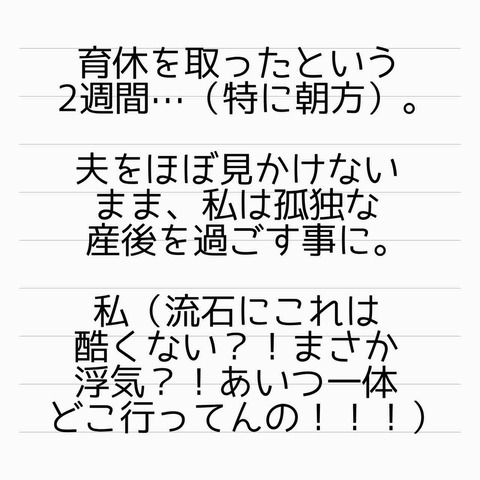 育休を取ったという
2週間…（特に朝方）。
夫をほぼ見かけない
まま、私は孤独な
産後を過ごす事に。
私（流石にこれは
酷くない？！まさか
浮気？！あいつ一体
どこ行ってんの！！！）